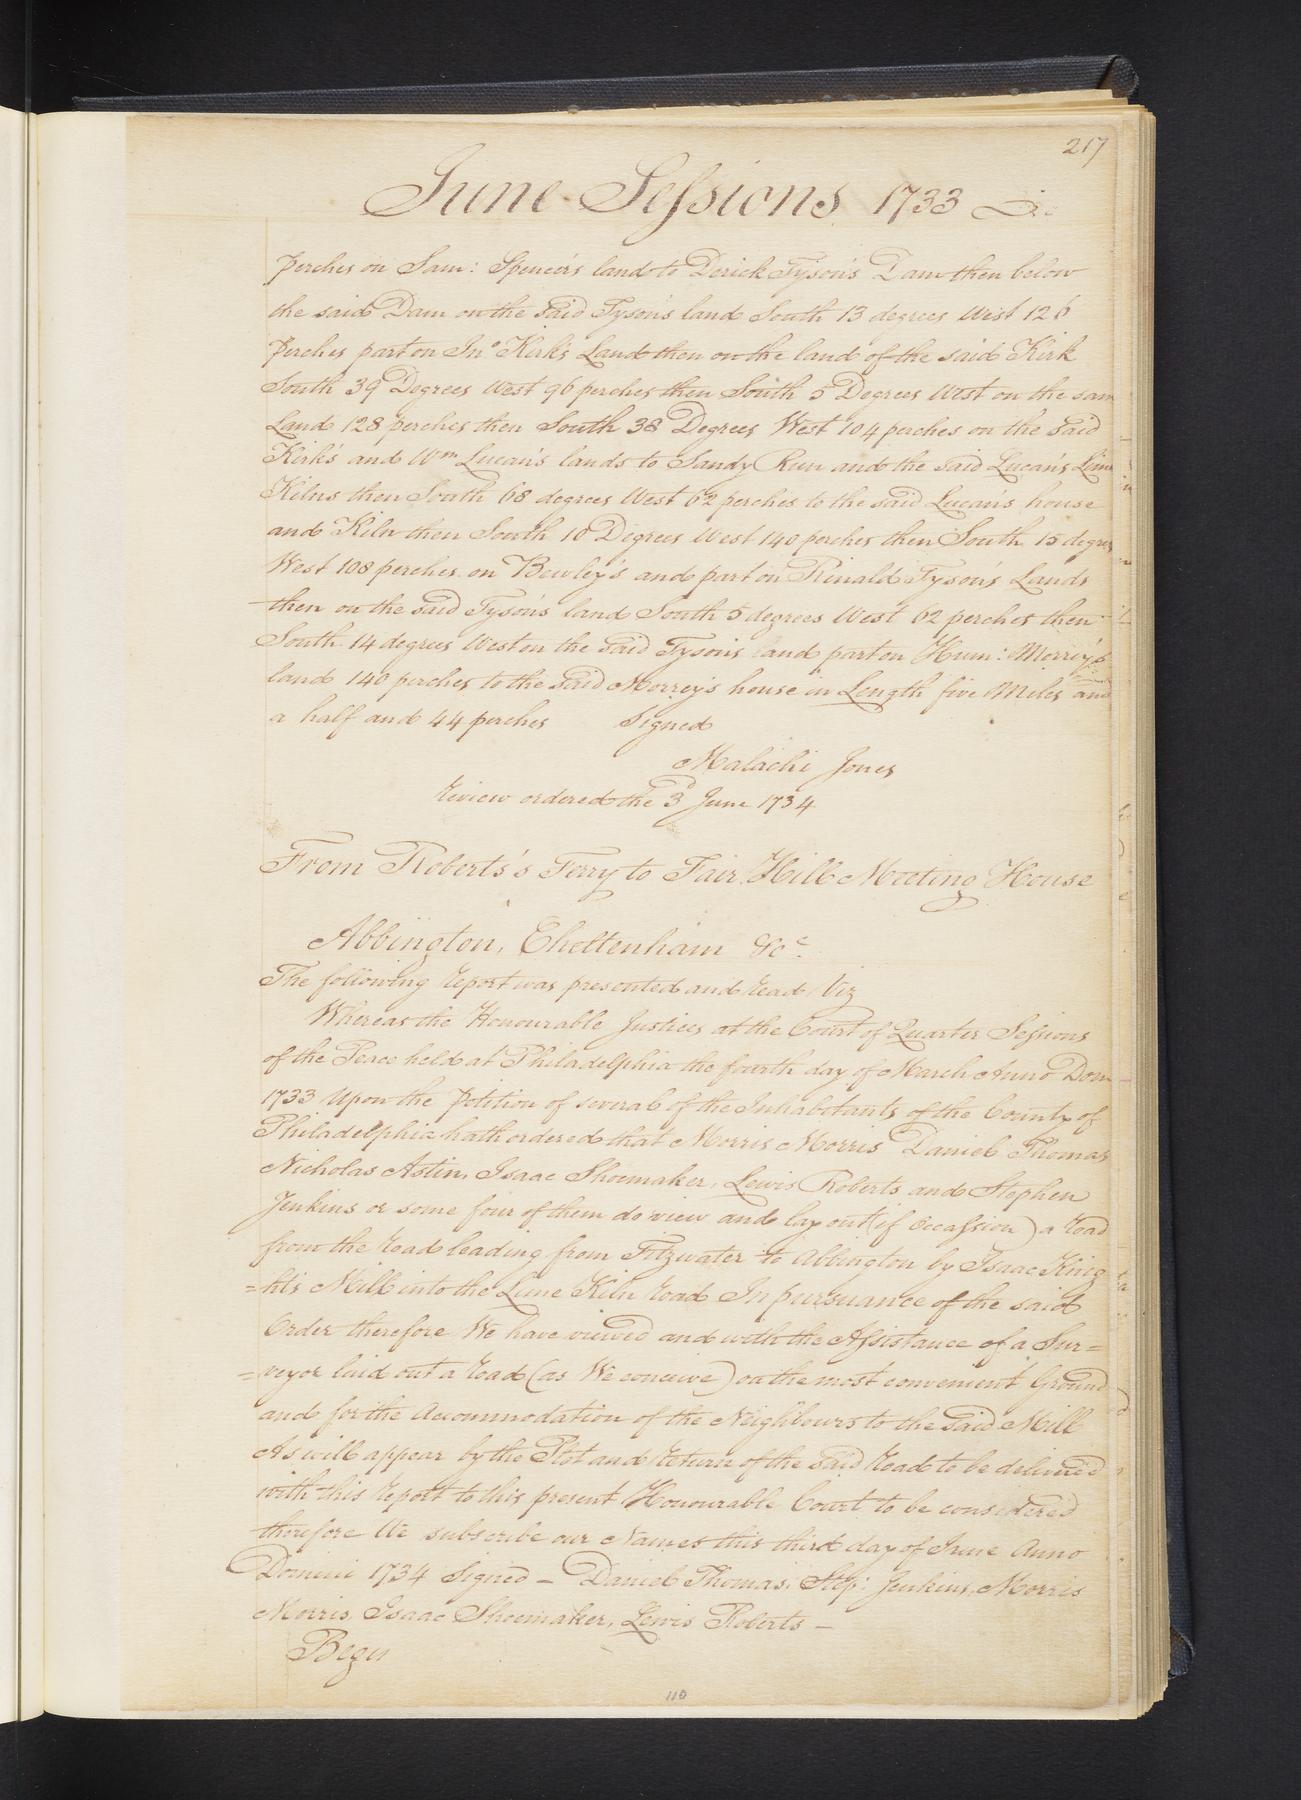 217
June Sessions 1733
perches on Sam: Spencer's land to Derick Tyson's Dam then below
the said Dam on the said Tyson's land South 13 degrees West 126
Perches part on Jno Kirk's Land then on the land of the said Kirk
South 39 Degrees West 96 perches then South 5 Degrees West on the sam
Land 128 perches then South 38 Degrees West 104 perches on the said
Kirk's and Wm Lucan's lands to Sandy Run and the said Lucan's Lime
Kilns then South 68 degrees West 62 perches to the said Lucan's house
and Kiln then South 10 Degrees West 140 perches then South 15 degrees
West 108 perches on Bewley's and part on Rinald Tyson's Lands
then on the said Tyson's land South 5 degrees West 62 perches then
South 14 degrees West on the said Tyson's land part on Hum: Morrey's
land 140 perches to the said Morrey's house in Length five Miles and
a half and 44 perches Signed
Malachi Jones
Review ordered the 3d June 1734
From Roberts's Ferry to Fair Hill Meeting House
Abbington, Cheltenham &c.
The following report was presented and read Viz
Whereas the Honourable Justices at the Court of Quarter Sessions
of the Peace held at Philadelphia the fourth day of March Anno Dom
1733 Upon the Petition of several of the Inhabitants of the County of
Philadelphia hath ordered that Morris Morris Daniel Thomas
Nicholas Astin, Isaac Shoemaker, Lewis Roberts and Stephen
Jenkins or some four of them do view and lay out (if occassion) a road
from the road leading from Fitzwater to Abbington by Isaac Knig
=hts Mill into the Lime Kiln road In pursuance of the said
Order therefore We have viewed and with the Assistance of a Sur=
=veyor laid out a road (as We conceive) on the most convenient Ground
and for the Accommodation of the Neighbours to the said Mill
As will appear by the Plot and return of the said road to be delivered
with this report to this present Honourable Court to be considered
therefore We subscribe our Names this third day of June Anno
Domini 1734 Signed – Daniel Thomas, Step: Jenkins, Morris
Morris, Isaac Shoemaker, Lewis Roberts –
110